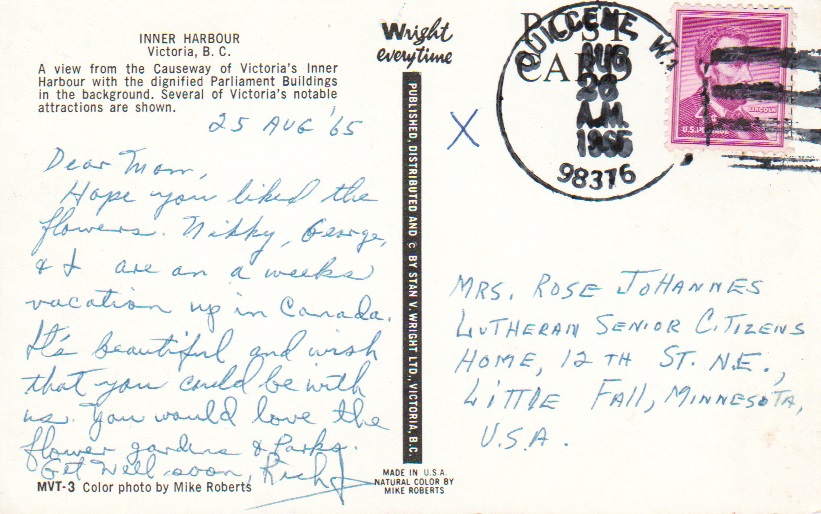 INNER HARBOUR
Victoria, B. C.
A view from the Causeway of Victoria's Inner
Harbour with the dignified Parliament Buildings
in the background. Several of Victoria's notable
attractions are shown.
25 AUG '65
Dear Mom,
Hope you liked the
flowers. Nikky, George,
& I are on a weeks
vacation up in Canada.
It's beautiful and wish
that you could be with
us. You would love the
flower gardens & Parks.
Get Well soon, Rich
MVT-3 Color photo by Mike Roberts
Wright
everytime
PUBLISHED, DISTRIBUTED AND © BY STAN V. WRIGHT LTD., VICTORIA, B.C.
MADE IN U.S.A.
NATURAL COLOR BY
MIKE ROBERTS
X
POST
CARD
QUILCENE, WA
AUG
26
A.M.
1965
98376
4¢
LINCOLN
U.S. POSTAGE
MRS. ROSE JOHANNES
LUTHERAN SENIOR CITIZENS
HOME, 12 TH ST. N.E.,
LITTLE FALL, MINNESOTA,
U.S.A.